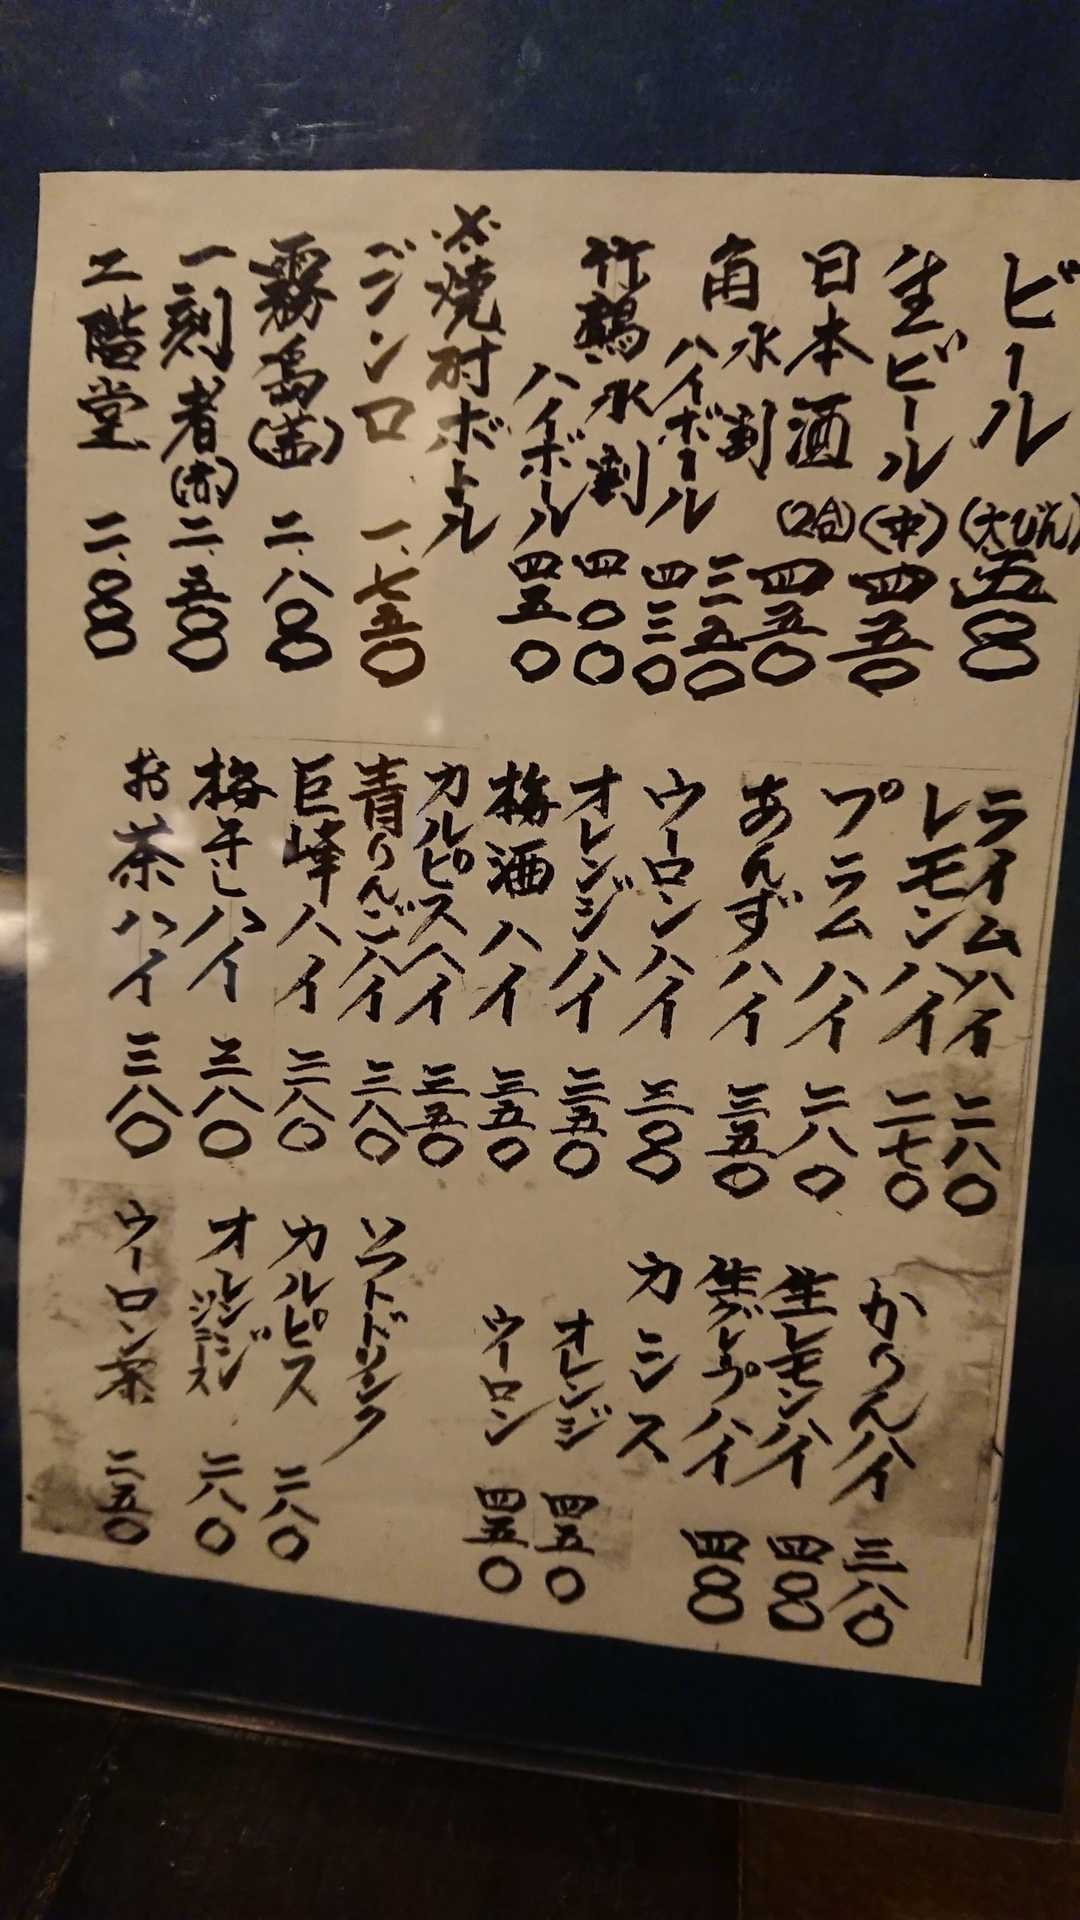 ビール(大びん)五〇〇
生ビール(中)四五〇
日本酒(2合)四五〇
角水割 三五〇
ハイボール 四三〇
竹鶴水割 四〇〇
ハイボール 四五〇
※焼酎ボトル
ジンロ 一、七五〇
霧島(茜) 二、八〇〇
一刻者(赤) 二、五〇〇
二階堂 二、〇〇〇
ライムハイ 二八〇
レモンハイ 二七〇
プラムハイ 二八〇
あんずハイ 三五〇
ウーロンハイ 三〇〇
オレンジハイ 三五〇
梅酒ハイ 三五〇
カルピスハイ 三五〇
青りんごハイ 三八〇
巨峰ハイ 三八〇
梅干しハイ 三八〇
お茶ハイ 三八〇
かりんハイ 三八〇
生レモンハイ 四〇〇
生グレープハイ 四〇〇
カシス
オレンジ 四五〇
ウーロン 四五〇
ソフトドリンク
カルピス 二八〇
オレンジジュース 二八〇
ウーロン茶 二五〇